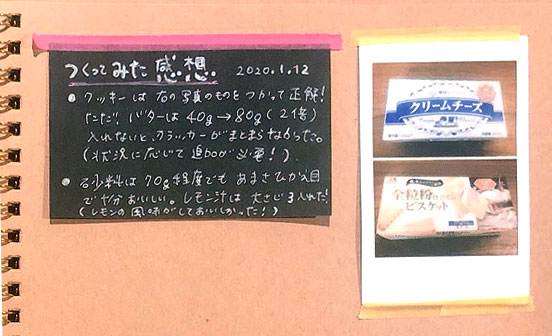 つくってみた感想 2020.1.12
・クッキーは右の写真のものをつかって正解!
ただし、バターは40g→80g(2倍)
入れないと、クラッカーがまとまらなかった。
(状況に応じて追加が必要!)
・砂糖は70g程度でもあまさひかえ目
で十分おいしい。レモン汁は大さじ3入れた!
(レモンの風味がしておいしかった!)
クリームチーズ
全粒粉
ビスケット